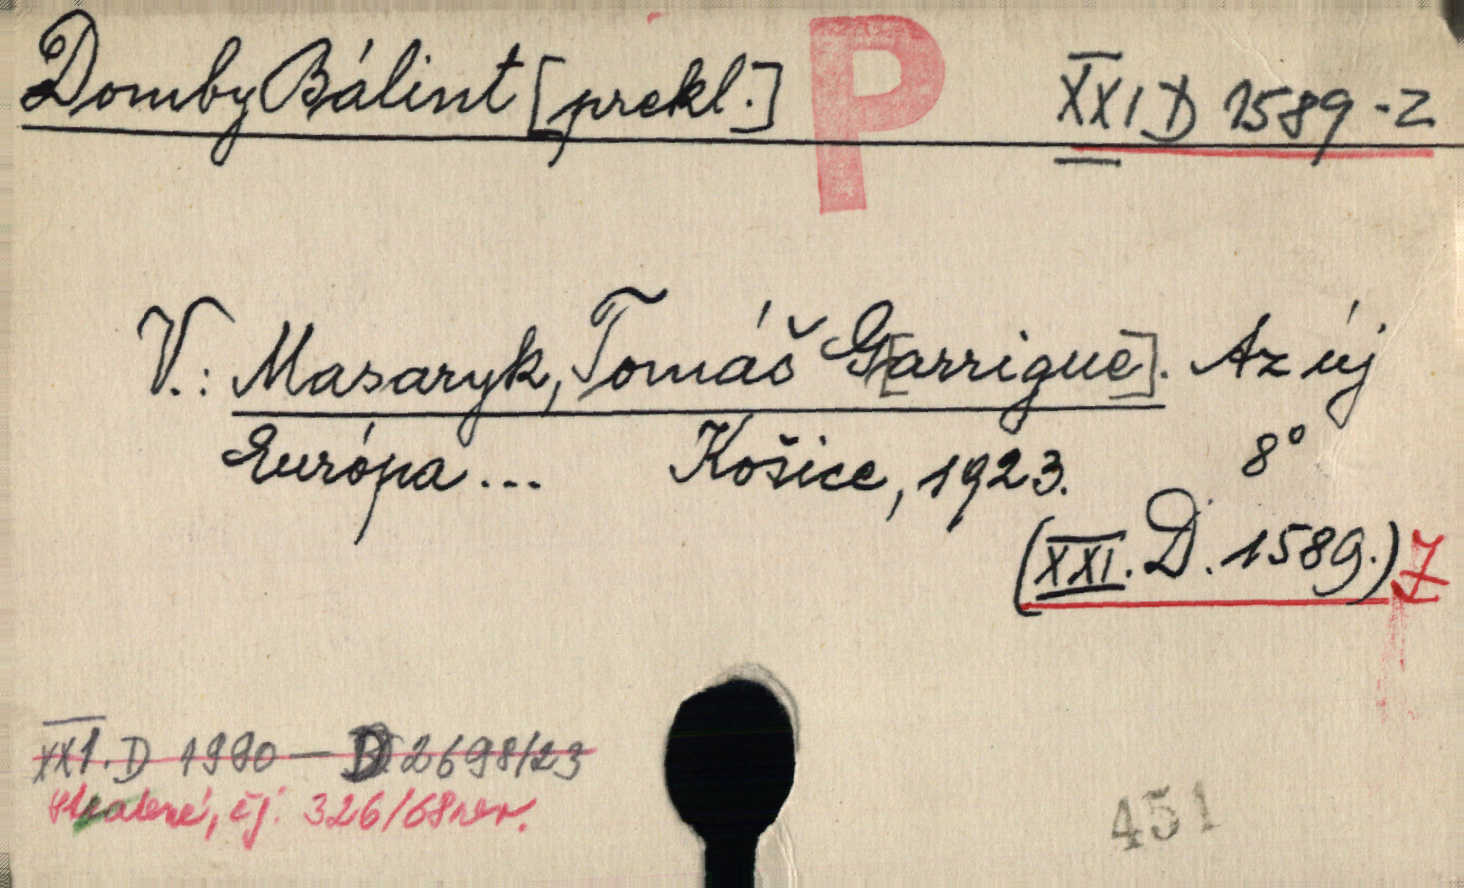 Domby Bálint [prekl.] P XXI D 1589-Z
V.: Masaryk, Tomáš G[arrigue]. Az új
Európa... Košice, 1923. 8°
(XXI. D. 1589.) Z
XXI. D 1990 — D 2698/23
stratené, čj. 326/68 rev.
451